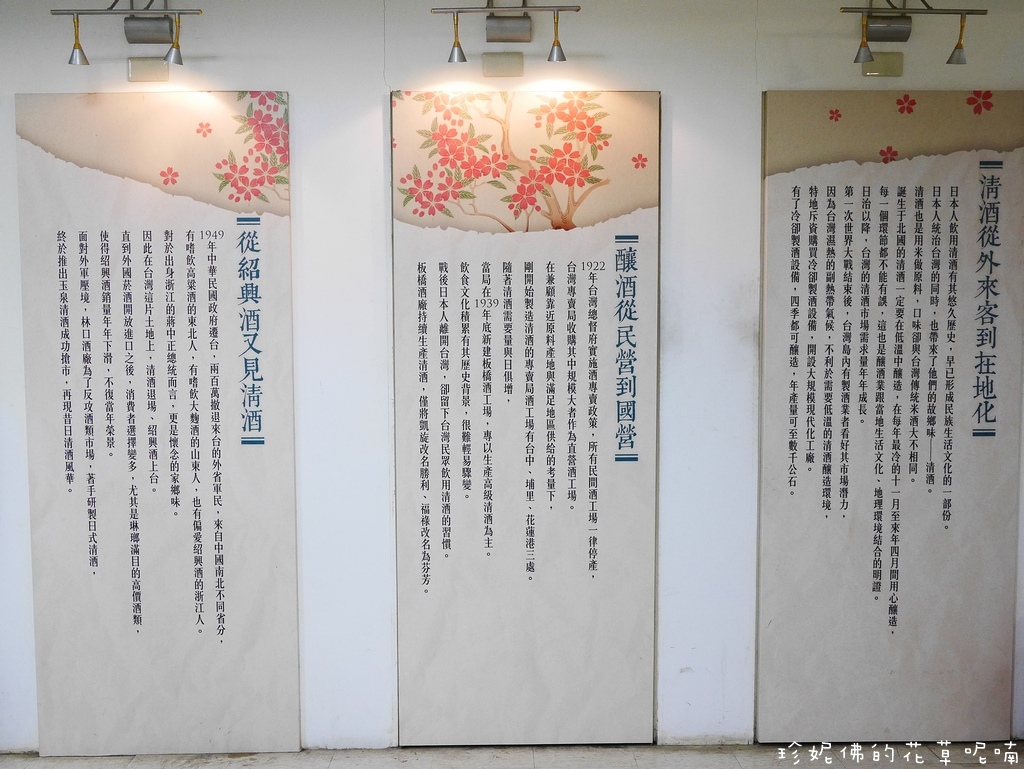 清酒從外來客到在地化
日本人飲用清酒有其悠久歷史，早已形成民族生活文化的一部份。
日本人統治台灣的同時，也帶來了他們的故鄉味——清酒。
清酒也是用米做原料，口味卻與台灣傳統米酒大不相同。
誕生于北國的清酒一定要在低溫中釀造，在每年最冷的十一月至來年四月間用心釀造，
每一個環節都不能有誤，這也是釀酒業跟當地生活文化、地理環境結合的明證。
日治以降，台灣的清酒市場需求量年年成長。
第一次世界大戰結束後，台灣島內有製酒業者看好其市場潛力，
因為台灣濕熱的副熱帶氣候，不利於需要低溫的清酒釀造環境，
特地斥資購買冷卻製酒設備，開設大規模現代化工廠。
有了冷卻製酒設備，四季都可釀造，年產量可至數千公石。
釀酒從民營到國營
1922年台灣總督府實施酒專賣政策，所有民間酒工場一律停產，
台灣專賣局收購其中規模大者作為直營酒工場。
在兼顧靠近原料產地與滿足地區供給的考量下，
剛開始製造清酒的專賣局酒工場有台中、埔里、花蓮港三處。
隨著清酒需要量與日俱增，
當局在1939年底新建板橋酒工場，專以生產高級清酒為主。
飲食文化積累有其歷史背景，很難輕易驟變。
戰後日本人離開台灣，卻留下台灣民眾飲用清酒的習慣。
板橋酒廠持續生產清酒，僅將凱旋改名勝利、福祿改名為芬芳。
從紹興酒又見清酒
1949年中華民國政府遷台，兩百萬撤退來台的外省軍民，來自中國南北不同省分，
有嗜飲高粱酒的東北人，有嗜飲大麴酒的山東人，也有偏愛紹興酒的浙江人。
對於出身浙江的蔣中正總統而言，更是懷念的家鄉味。
因此在台灣這片土地上，清酒退場、紹興酒上台。
直到外國菸酒開放進口之後，消費者選擇變多，尤其是琳瑯滿目的高價酒類，
使得紹興酒銷量年年下滑，不復當年榮景。
面對外軍壓境，林口酒廠為了反攻酒類市場，著手研製日式清酒，
終於推出玉泉清酒成功搶市，再現昔日清酒風華。
珍妮佛的花草呢喃